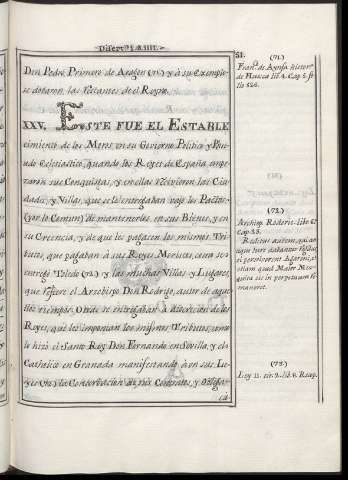 Disert.
51.
Don Pedro Primero de Aragon (71) y à su exemplo
se dotaron las restantes de el Reyno.
XXV. ESTE FUE EL ESTABLE
cimiento de los Moros en su Govierno Politico y
Eclesiastico, quando los Reyes de España empe
zaron sus Conquistas, y en ellas recivieron las Ciu
dades, y Villas, que se les entregaban vajo los Pactos
(por lo Comun) de mantenerlos en sus Bienes, y en
su Creencia, y de que les pagasen los mismos Tri
butos, que pagaban à sus Reyes Moriscos, como se
entregò Toledo (72) y las muchas Villas, y Lugares,
que refiere el Arzobispo Don Rodrigo, autor de aque
llos tiempos. Otros se entregaban à discrecion de los
Reyes, que les imponian los mismos Tributos, como
lo hizo el Santo Rey Don Fernando en Sevilla, y el
Catholico en Granada manifestando à en sus Le
yes (73) la Conservacion de sus Contratos, y obliga
(71.)
Fran.co de Aynsa Histor.
de Huesca lib. 4. Cap. 5. fo
lio 526.
(72.)
Archiep. Roderic. lib. 6.
Cap. 23.
(73.)
Ley 11. tit. 2. lib. 8. Recop.